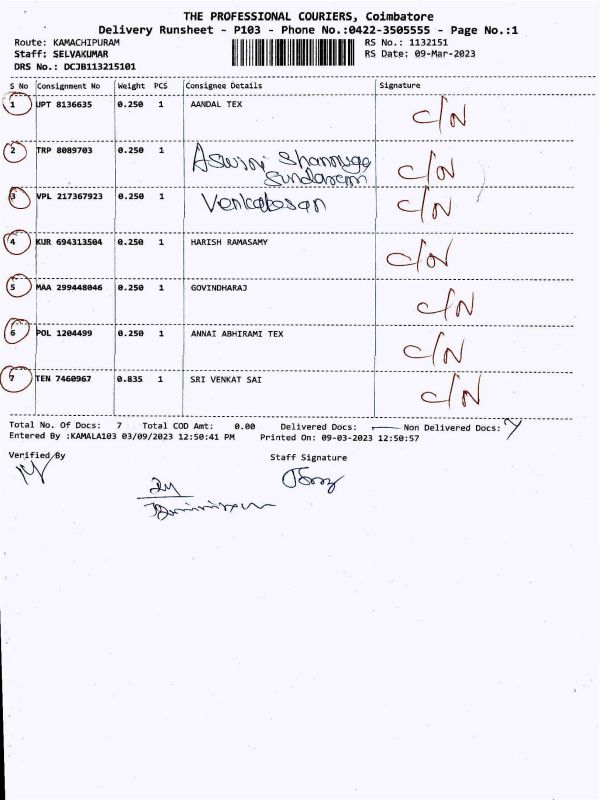 THE PROFESSIONAL COURIERS, Coimbatore
Delivery Runsheet - P103 - Phone No.:0422-3505555 - Page No.:1
Route: KAMACHIPURAM RS No.: 1132151
Staff: SELVAKUMAR RS Date: 09-Mar-2023
DRS No.: DCJB113215101
S No Consignment No Weight PCS Consignee Details Signature
1 UPT 8136635 0.250 1 AANDAL TEX C/N
2 TRP 8089703 0.250 1 Aswini Shanmuga C/N
Sundaram
3 VPL 217367923 0.250 1 Venkatesan C/N
4 KUR 694313504 0.250 1 HARISH RAMASAMY C/N
5 MAA 299448046 0.250 1 GOVINDHARAJ C/N
6 POL 1204499 0.250 1 ANNAI ABHIRAMI TEX C/N
7 TEN 7460967 0.835 1 SRI VENKAT SAI C/N
Total No. Of Docs: 7 Total COD Amt: 0.00 Delivered Docs: — Non Delivered Docs: 7
Entered By :KAMALA103 03/09/2023 12:50:41 PM Printed On: 09-03-2023 12:50:57
Verified By Staff Signature